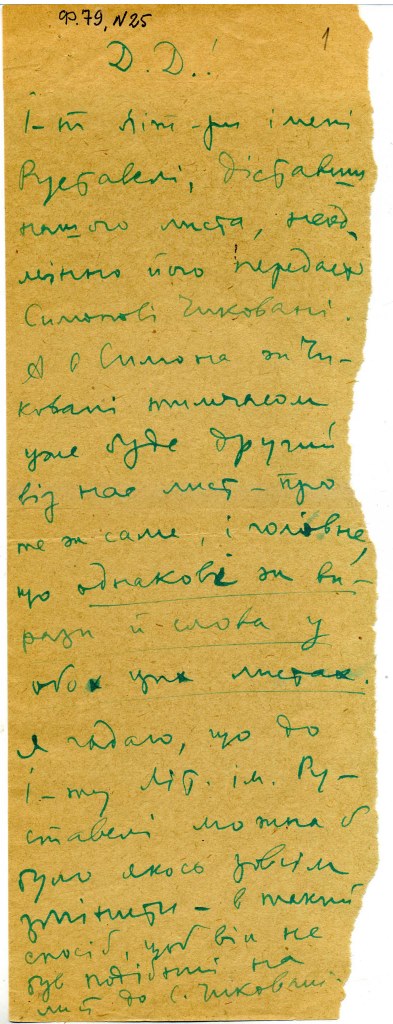 Ф. 79, N 25
1
Д. Д.!
І-т літ-ри імені
Руставелі, діставши
нашого листа, неод
мінно його передасть
Симонові Чиковані.
А в Симона ж Чи-
ковані тимчасом
уже буде другий
від нас лист – про
те ж саме, і головне,
що однакові ж ви-
рази й слова у
обох цих листах.
Я гадаю, що до
І-ту літ. ім. Ру-
ставелі можна б
було якось зовсім
змінити – в такий
спосіб, щоб він не
був подібний на
лист до С. Чиковані.